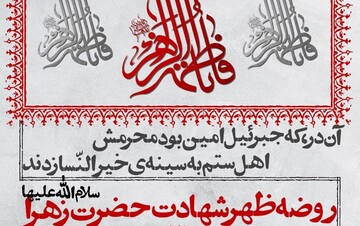 فاطمة الزهرا فاطمة الزهرا فاطمة الزهرا
آن در، که جبرئیل امین بود محرمش
اهل ستم به سینه‌ی خیرالنّسا زدند
سلام‌الله‌علیها
روضه ظهر شهادت حضرت زهرا